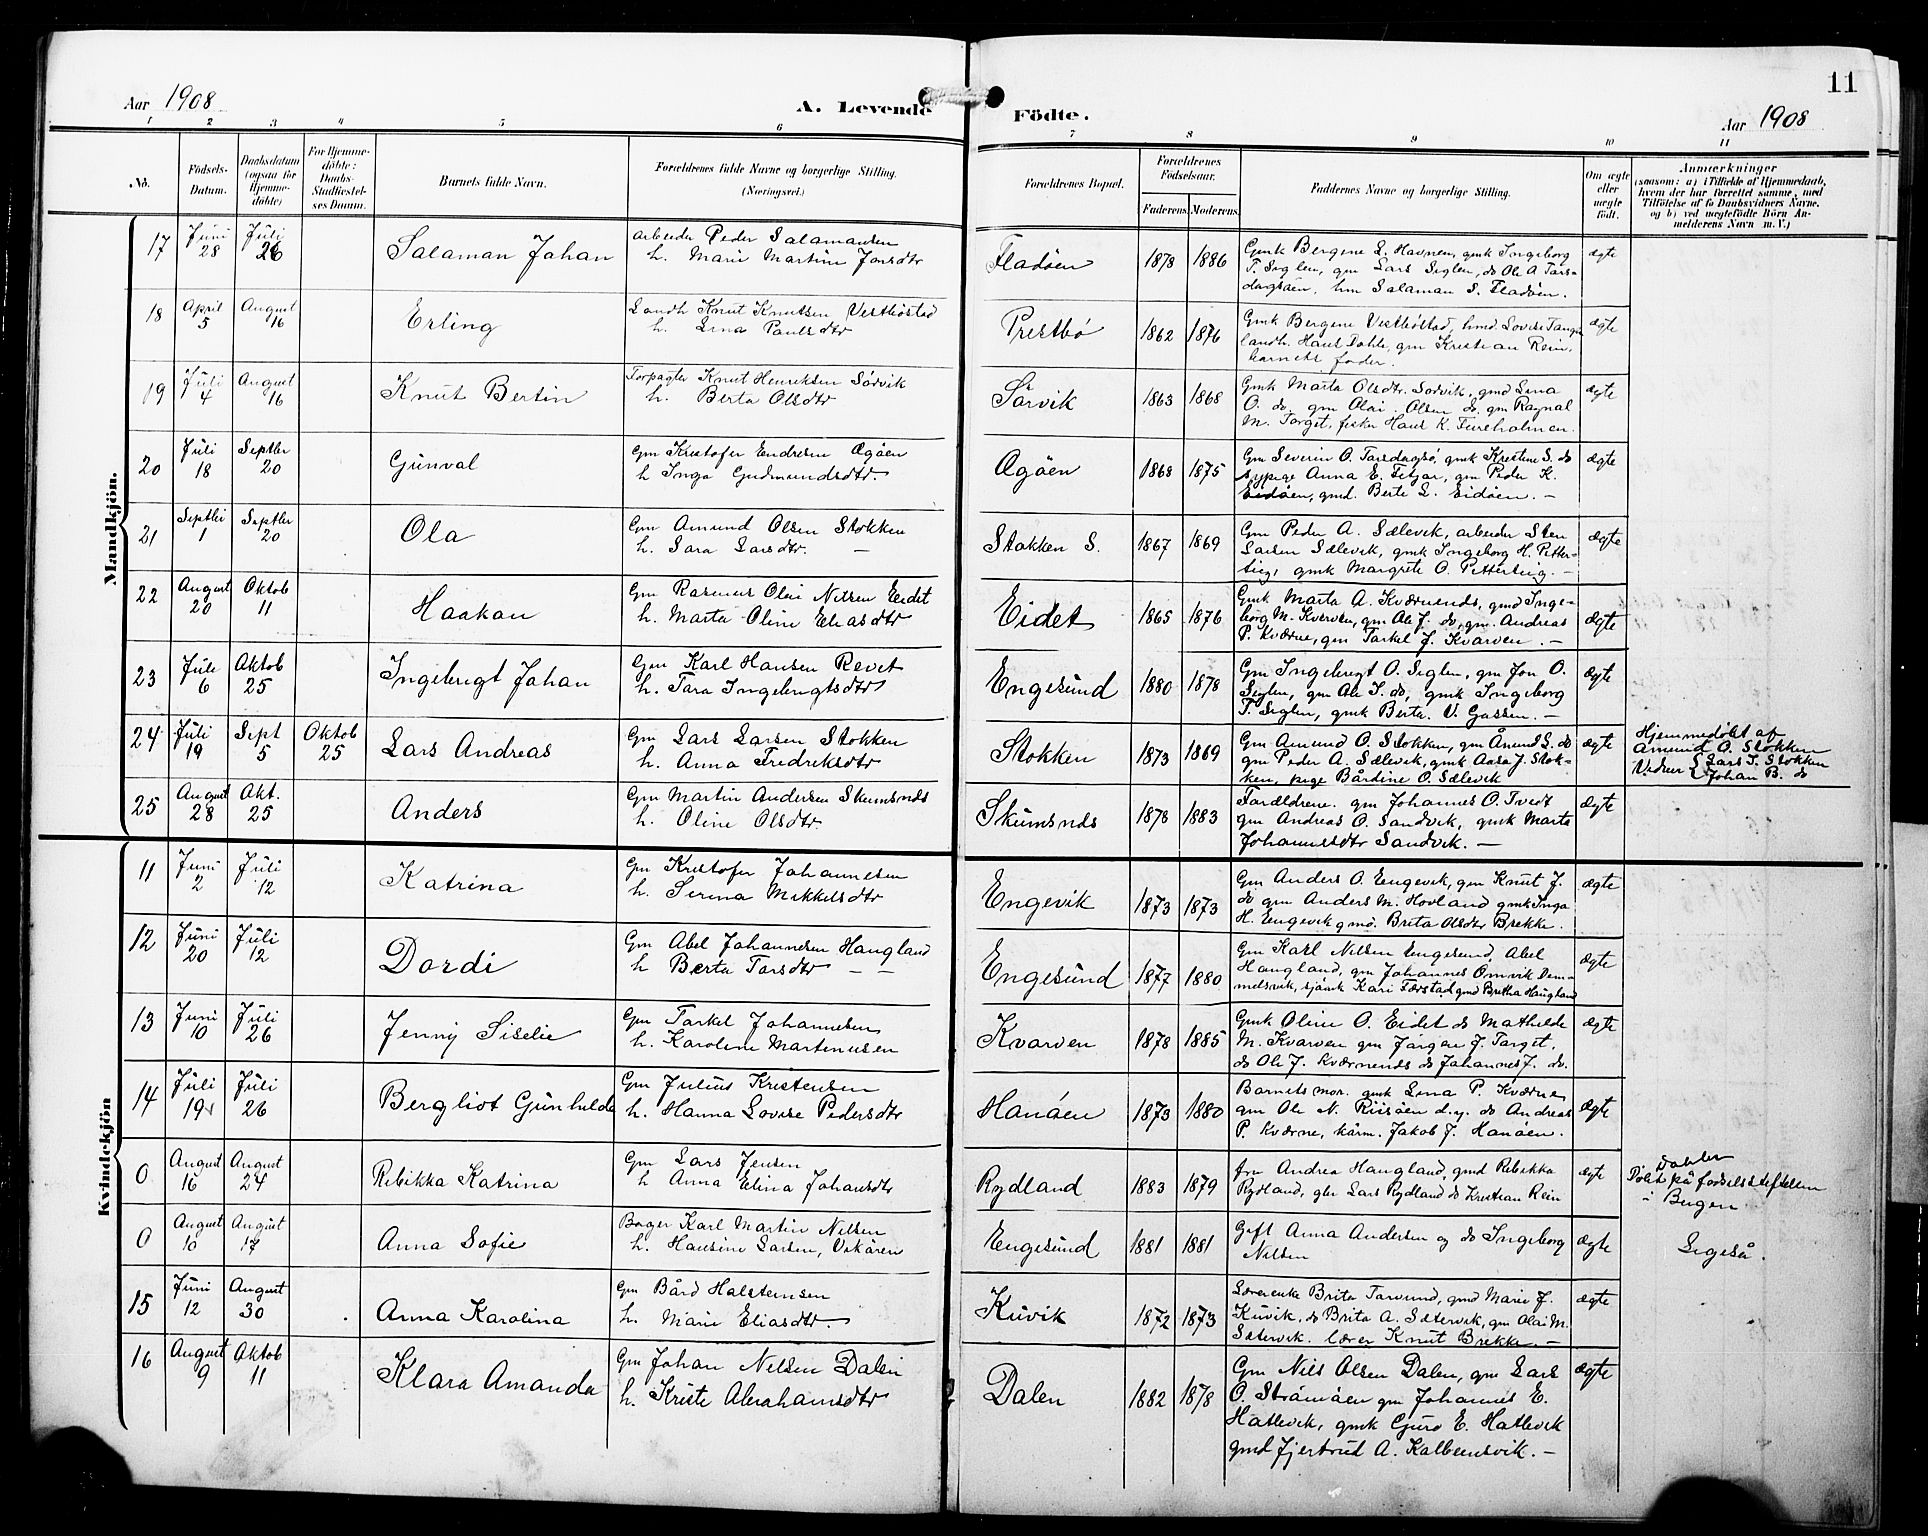 11
Aar 1908
A. Levende Födte.
Aar 1908
1 2 3 4 5 6 7 8 9 10 11
No.
Födsels-
Datum.
Daabsdatum
(ogsaa for
Hjemme-
döbte)
For Hjemme-
döbte:
Daabs-
Stadfæstel-
ses Datum.
Barnets fulde Navn.
Forældrenes fulde Navne og borgerlige Stilling.
(Næringsvei.)
Forældrenes Bopæl.
Forældrenes
Födselsaar.
Faderens.
Moderens.
Faddernes Navne og borgerlige Stilling.
Om ægte
eller
uægte
födt.
Anmærkninger
(saasom: a) i Tilfælde af Hjemmedaab,
hvem der har forrettet samme, med
Tilföielse af to Daabsvidners Navne,
og b) ved uægtefödte Börn An-
melderens Navn m. V.)
Mandkjön.
17 Juni 28 Juli 26 Salaman Johan
arbeider Peder Salamansen
h. Marie Martine Jonsdtr
Fladöen 1878 1886
Gmk Bergine L. Havnen, gmk Ingeborg
T. Siglen, gm Lars Siglen, do Ole A Tors-
dagsöen, hm Salaman S. Fladöen.
ægte
18 April 5 August 16 Erling
Landh Knut Knutsen Vestböstad
h. Lina Paulsdtr
Prestbø 1862 1876
Gmk Bergine Vestböstad, hmd. Lovise Tangen
landh. Hans Dahle, gm Kristian Rein,
barnets fader.
ægte
19 Juli 4 August 16 Knut Bertin
Forpagter Knut Henriksen Sörvik
h. Berta Olsdtr
Sörvik 1863 1868
Gmk Marta Olsdtr. Sörvik, gmd Lina
O. do, gm Olai Olsen do, gm Ragnal
M. Torget, fisker Hans K. Fureholmen.
ægte
20 Juli 18 Septbr 20 Gunval
Gm Kristofer Endresen Ögöen
h Inga Gudmundsdtr.
Ögöen 1868 1875
Gm Severin O. Torsdagsö, gmk Kristine S. do
sypige Anna E. Fitjar, gm Peder K.
Eidöen, gmd. Berte L. Eidöen. -
ægte
21 Septbr 1 Septbr 20 Ola
Gm Amund Olsen Stokken
h. Sara Larsdtr. -
Stokken S. 1867 1869
Gm Peder A. Sælevik, arbeider Sten
Larsen Sælevik, gmk Ingeborg H. Petter-
teig, gmk Margrete O. Petterteig. -
ægte
22 August 20 Oktob 11 Haakon
Gm Rasmus Olai Nilsen Eidet
h. Marta Oline Eliasdtr
Eidet 1865 1876
Gmk Marta A. Kværnends, gmd Inge-
borg M. Kverven, gm Ole J. do, gm. Andreas
P. Kværne, gm Torkel J. Kvarven. -
ægte
23 Juli 6 Oktob 25 Ingebrigt Johan
Gm Karl Hansen Revet
h. Tora Ingebrigtsdtr
Engesund 1880 1878
Gm Ingebrigt O. Siglen, gm Jon O.
Siglen, gm Ole I. do, gmk Ingeborg
T. Siglen, gmk Berta V. Gassen. -
ægte
24 Juli 19 Sept 5 Oktob 25 Lars Andreas
Gm Lars Larsen Stokken
h. Anna Fredriksdtr
Stokken 1873 1869
Gm Amund O. Stokken, gm Ånund S. do
gm Peder A. Sælevik, gmk Aasa J. Stok-
ken, pige Bårdine O. Sælevik
ægte
Hjemmedöbt af
Amund O. Stokken
Vidner Lars S. Stokken
Johan B. do
25 August 28 Okt. 25 Anders
Gm Martin Andersen Skumsnds
h. Oline Olsdtr.
Skumsnds 1878 1883
Forældrene. gm Johannes O. Tvedt
gm Andreas O. Sandvik, gmk Marta
Johannesdtr Sandvik. -
ægte
Kvindekjön
11 Juni 2 Juli 12 Katrina
Gm Kristofer Johannesen
h. Serina Mikkelsdtr
Engevik 1873 1873
Gm Anders O. Engevik, gm Knut J.
do gm Anders M. Hovland gmk Inga
H. Engevik gmd. Brita Olsdtr Brekke.
ægte
12 Juni 20 Juli 12 Dordi
Gm Abel Johannesen Haugland
h Berta Torsdtr - -
Engesund 1877 1880
Gm Karl Nilsen Engesund, Abel
Haugland, gm Johannes Omvik Dem-
melsvik, sjömk Kari Færstad gmd Bretha Haugland
ægte
13 Juni 10 Juli 26 Jenny Siselie
Gm Torkel Johannesen
h. Karoline Martinusen
Kvarven 1878 1885
Gmk Oline O. Eidet do Mathilde
M. Kvarven gm Jörgen J. Torget,
do Ole J. Kværnends do Johannes J. do.
ægte
14 Juli 19 Juli 26 Bergliot Gunhilde
Gm Julius Kristensen
h. Hanna Lovise Pedersdtr
Hanöen 1873 1880
Barnets mor. gmk Lina P. Kværne
gm Ole N. Risöen d.y. do Andreas
P. Kværne, kårm. Jakob J. Hanöen.
ægte
0 August 16 August 24 Rebikka Katrina
Gm Lars Jensen
h Anna Elina Johansdtr
Rydland 1883 1879
fru Andrea Haugland, gmd Rebikka
Rydland, gbr Lars Rydland do Kristian Rein
ægte
Döbt på födselsstiftelsen
i Bergen
0 August 10 August 17 Anna Sofie
Bager Karl Martin Nilsen
h. Hansine Larsen, Vikören
Engesund 1881 1881
Gift Anna Andersen og do Ingeborg
Nilsen
ægte
Ligeså.
15 Juni 12 August 30 Anna Karolina
Gm Bård Halsteinsen
h. Marie Eliasdtr -
Kuvik 1872 1873
Lærerenke Brita Torsund, gmd Marie J.
Kuvik, do Brita A. Sætervik, gm Olai M.
Sætervik. lærer Knut Brekke. -
ægte
16 August 9 Oktob 11 Klara Amanda
Gm Johan Nilsen Dalen
h. Kristi Abrahamsdtr
Dalen 1882 1878
Gm Nils Olsen Dalen, gm Lars
O. Strömöen gm Johannes E.
Hatlevik, gmk Guro E. Hatlevik
gmd Gjertrud A. Kalbeinsvik. -
ægte